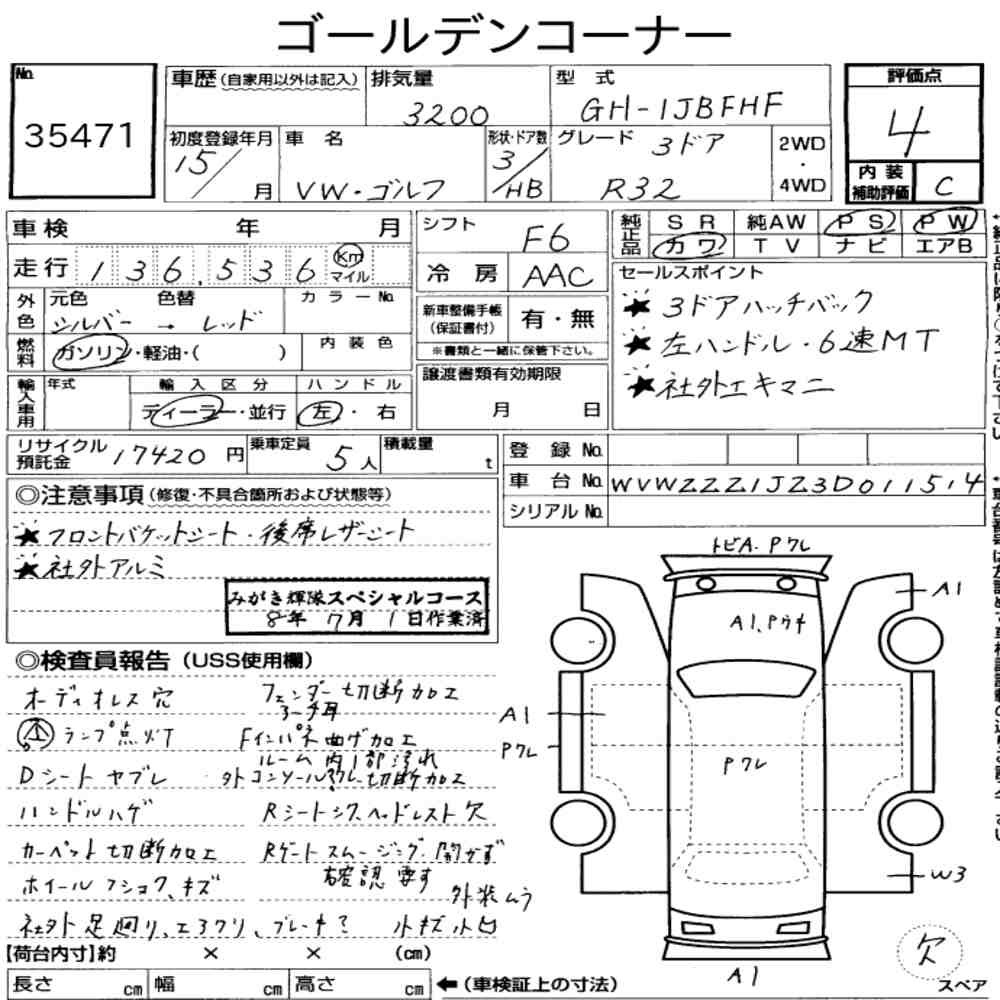 ゴールデンコーナー
No.
35471
車歴(自家用以外は記入)
排気量
3200
型 式
GH-1JBFHF
評価点
4
初度登録年月
15/ 月
車 名
VW・ゴルフ
形状・ドア数
3/HB
グレード
3ドア
R32
2WD
・
4WD
内 装
補助評価
C
車検 年 月
走行 136,536 Km マイル
シフト
F6
冷 房
AAC
純正品
SR 純AW PS PW
カワ TV ナビ エアB
外色
元色 色替
シルバー → レッド
カラーNo.
燃料
ガソリン・軽油・( )
内 装 色
新車整備手帳
(保証書付)
有・無
※書類と一緒に保管下さい。
セールスポイント
★ 3ドアハッチバック
★ 左ハンドル・6速MT
★ 社外エキマニ
輸入車用
年式
輸 入 区 分
ディーラー・並行
ハ ン ド ル
左・右
譲渡書類有効期限
月 日
リサイクル
預託金
17420 円
乗車定員
5人
積載量
t
登 録 No.
車 台 No. WVWZZZ1JZ3D011514
シリアル No.
◎注意事項(修復・不具合箇所および状態等)
★フロントバケットシート・後席レザーシート
★社外アルミ
みがき輝隊スペシャルコース
8年 7月 1日作業済
◎検査員報告(USS使用欄)
オーディオレス穴
ランプ点灯
Dシートヤブレ
ハンドルハゲ
カーペット切断加工
ホイールフショク、キズ
社外足廻り、エアクリ、ブレーキ?
フェンダー切断加工
Fインパネ曲げ加工
ルーム内1部汚れ
外コンソール 切断加工
RシートシタヘッドレストR欠
Rゲートスムージング開かず
確認要す
外装ムラ
小キズ小凹
トビA.Pワレ
A1
A1
Pワレ
Pワレ
W3
A1
欠
スペア
【荷台内寸】約 × × (cm)
長さ cm 幅 cm 高さ cm
←(車検証上の寸法)